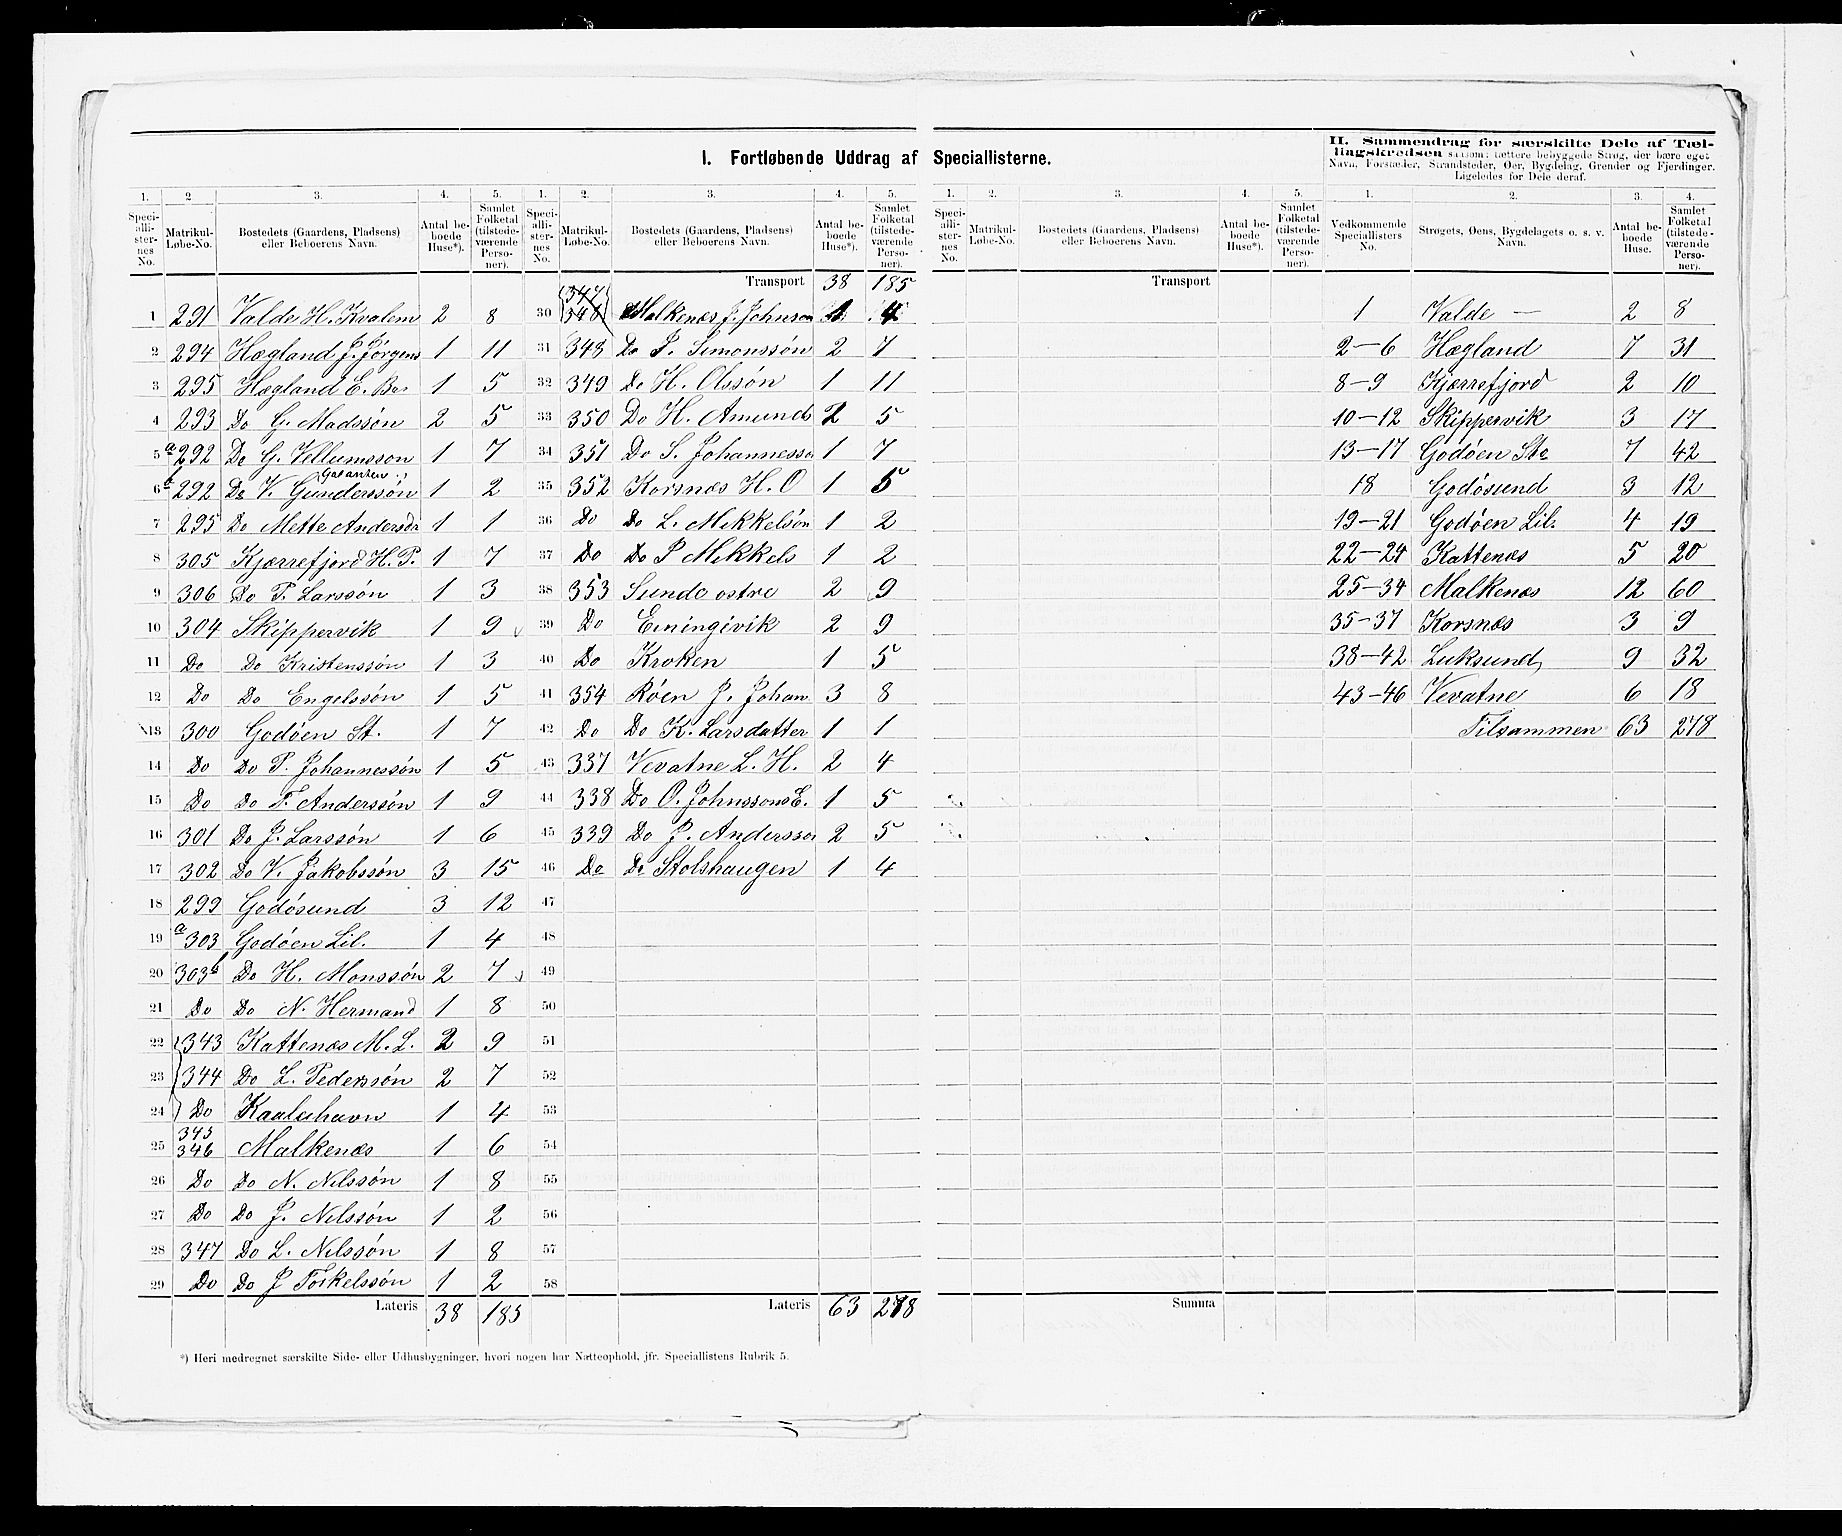 I. Fortløbende Uddrag af Speciallisterne.
II. Sammendrag for særskilte Dele af Tællingskredsen saasom: tættere bebyggede Strøg, der bære eget
Navn, Forstæder, Strandsteder, Øer, Bygdelag, Grender og Fjerdinger.
Ligeledes for Dele deraf.
1. 2. 3. 4. 5. 1. 2. 3. 4. 5. 1. 2. 3. 4. 5. 1. 2. 3. 4.
Speciallisternes No. Matrikul-Løbe-No. Bostedets (Gaardens, Pladsens) eller Beboerens Navn. Antal beboede Huse*). Samlet Folketal (tilstedeværende Personer).
Speciallisternes No. Matrikul-Løbe-No. Bostedets (Gaardens, Pladsens) eller Beboerens Navn. Antal beboede Huse*). Samlet Folketal (tilstedeværende Personer).
Speciallisternes No. Matrikul-Løbe-No. Bostedets (Gaardens, Pladsens) eller Beboerens Navn. Antal beboede Huse*). Samlet Folketal (tilstedeværende Personer).
Vedkommende Speciallisters No. Strøgets, Øens, Bygdelagets o. s. v. Navn. Antal beboede Huse. Samlet Folketal (tilstedeværende Personer).
1 291 Valde H. Kvalem 2 8
2 294 Hægland J. Jørgens 1 11
3 295 Hægland E. Be 1 5
4 293 Do G. Madssøn 2 5
5 a 292 Do G. Vellumsson 1 7
6 b 292 Do V. Gunderssøn 1 2
7 295 Do Mette Andersdr 1 1
8 305 Kjærrefjord H. P. 1 7
9 306 Do T. Larssøn 1 3
10 304 Skippervik 1 9
11 Do Do Kristenssøn 1 3
12 Do Do Engelssøn 1 5
13 300 Godøen St. 1 7
14 Do Do P. Johannessøn 1 5
15 Do Do T. Anderssøn 1 9
16 301 Do J. Larssøn 1 6
17 302 Do V. Jakobssøn 3 15
18 299 Godøsund 3 12
19 a 303 Godøen Lil. 1 4
20 303 b Do H. Monssøn 2 7
21 Do Do N. Hermand 1 8
22 343 Kattenæs M. L. 2 9
23 344 Do L. Pederssøn 2 7
24 Do Kaalehavn 1 4
25 345 346 Malkenæs 1 6
26 Do Do N. Nilssøn 1 8
27 Do Do J. Nilssøn 1 2
28 347 Do L. Nilssøn 1 8
29 Do Do J Torkelssøn 1 2
Lateris 38 185
Transport 38 185
30 347 348 Malkenæs J. Johnson 1 4
31 348 Do P. Simonssøn 2 7
32 349 Do H. Olssøn 1 11
33 350 Do H. Amunds 2 5
34 351 Do S. Johannesso 1 7
35 352 Korsnæs H. O 1 5
36 Do Do L. Mikkelsøn 1 2
37 Do Do P Mikkels 1 2
38 353 Sunde østre 2 9
39 Do Emingivik 2 9
40 Do Kroken 1 5
41 354 Røen J. Johan 3 8
42 Do Do K. Larsdatter 1 1
43 337 Vevatne L. H. 2 4
44 338 Do O. Johnssons E. 1 5
45 339 Do J. Andersson 2 5
46 Do Do Stolshaugen 1 4
47
48
49
50
51
52
53
54
55
56
57
58
Lateris 63 278
Transport
Summa
1 Valde — 2 8
2—6 Hægland 7 31
8—9 Kjærrefjord 2 10
10—12 Skippervik 3 17
13—17 Godøen Ste 7 42
18 Godøsund 3 12
19—21 Godøen Lil. 4 19
22—24 Kattenæs 5 20
25—34 Malkenæs 12 60
35—37 Korsnæs 3 9
38—42 Luksund 9 32
43—46 Vevatne 6 18
Tilsammen 63 278
*) Heri medregnet særskilte Side- eller Udhusbygninger, hvori nogen har Natteophold, jfr. Speciallistens Rubrik 5.